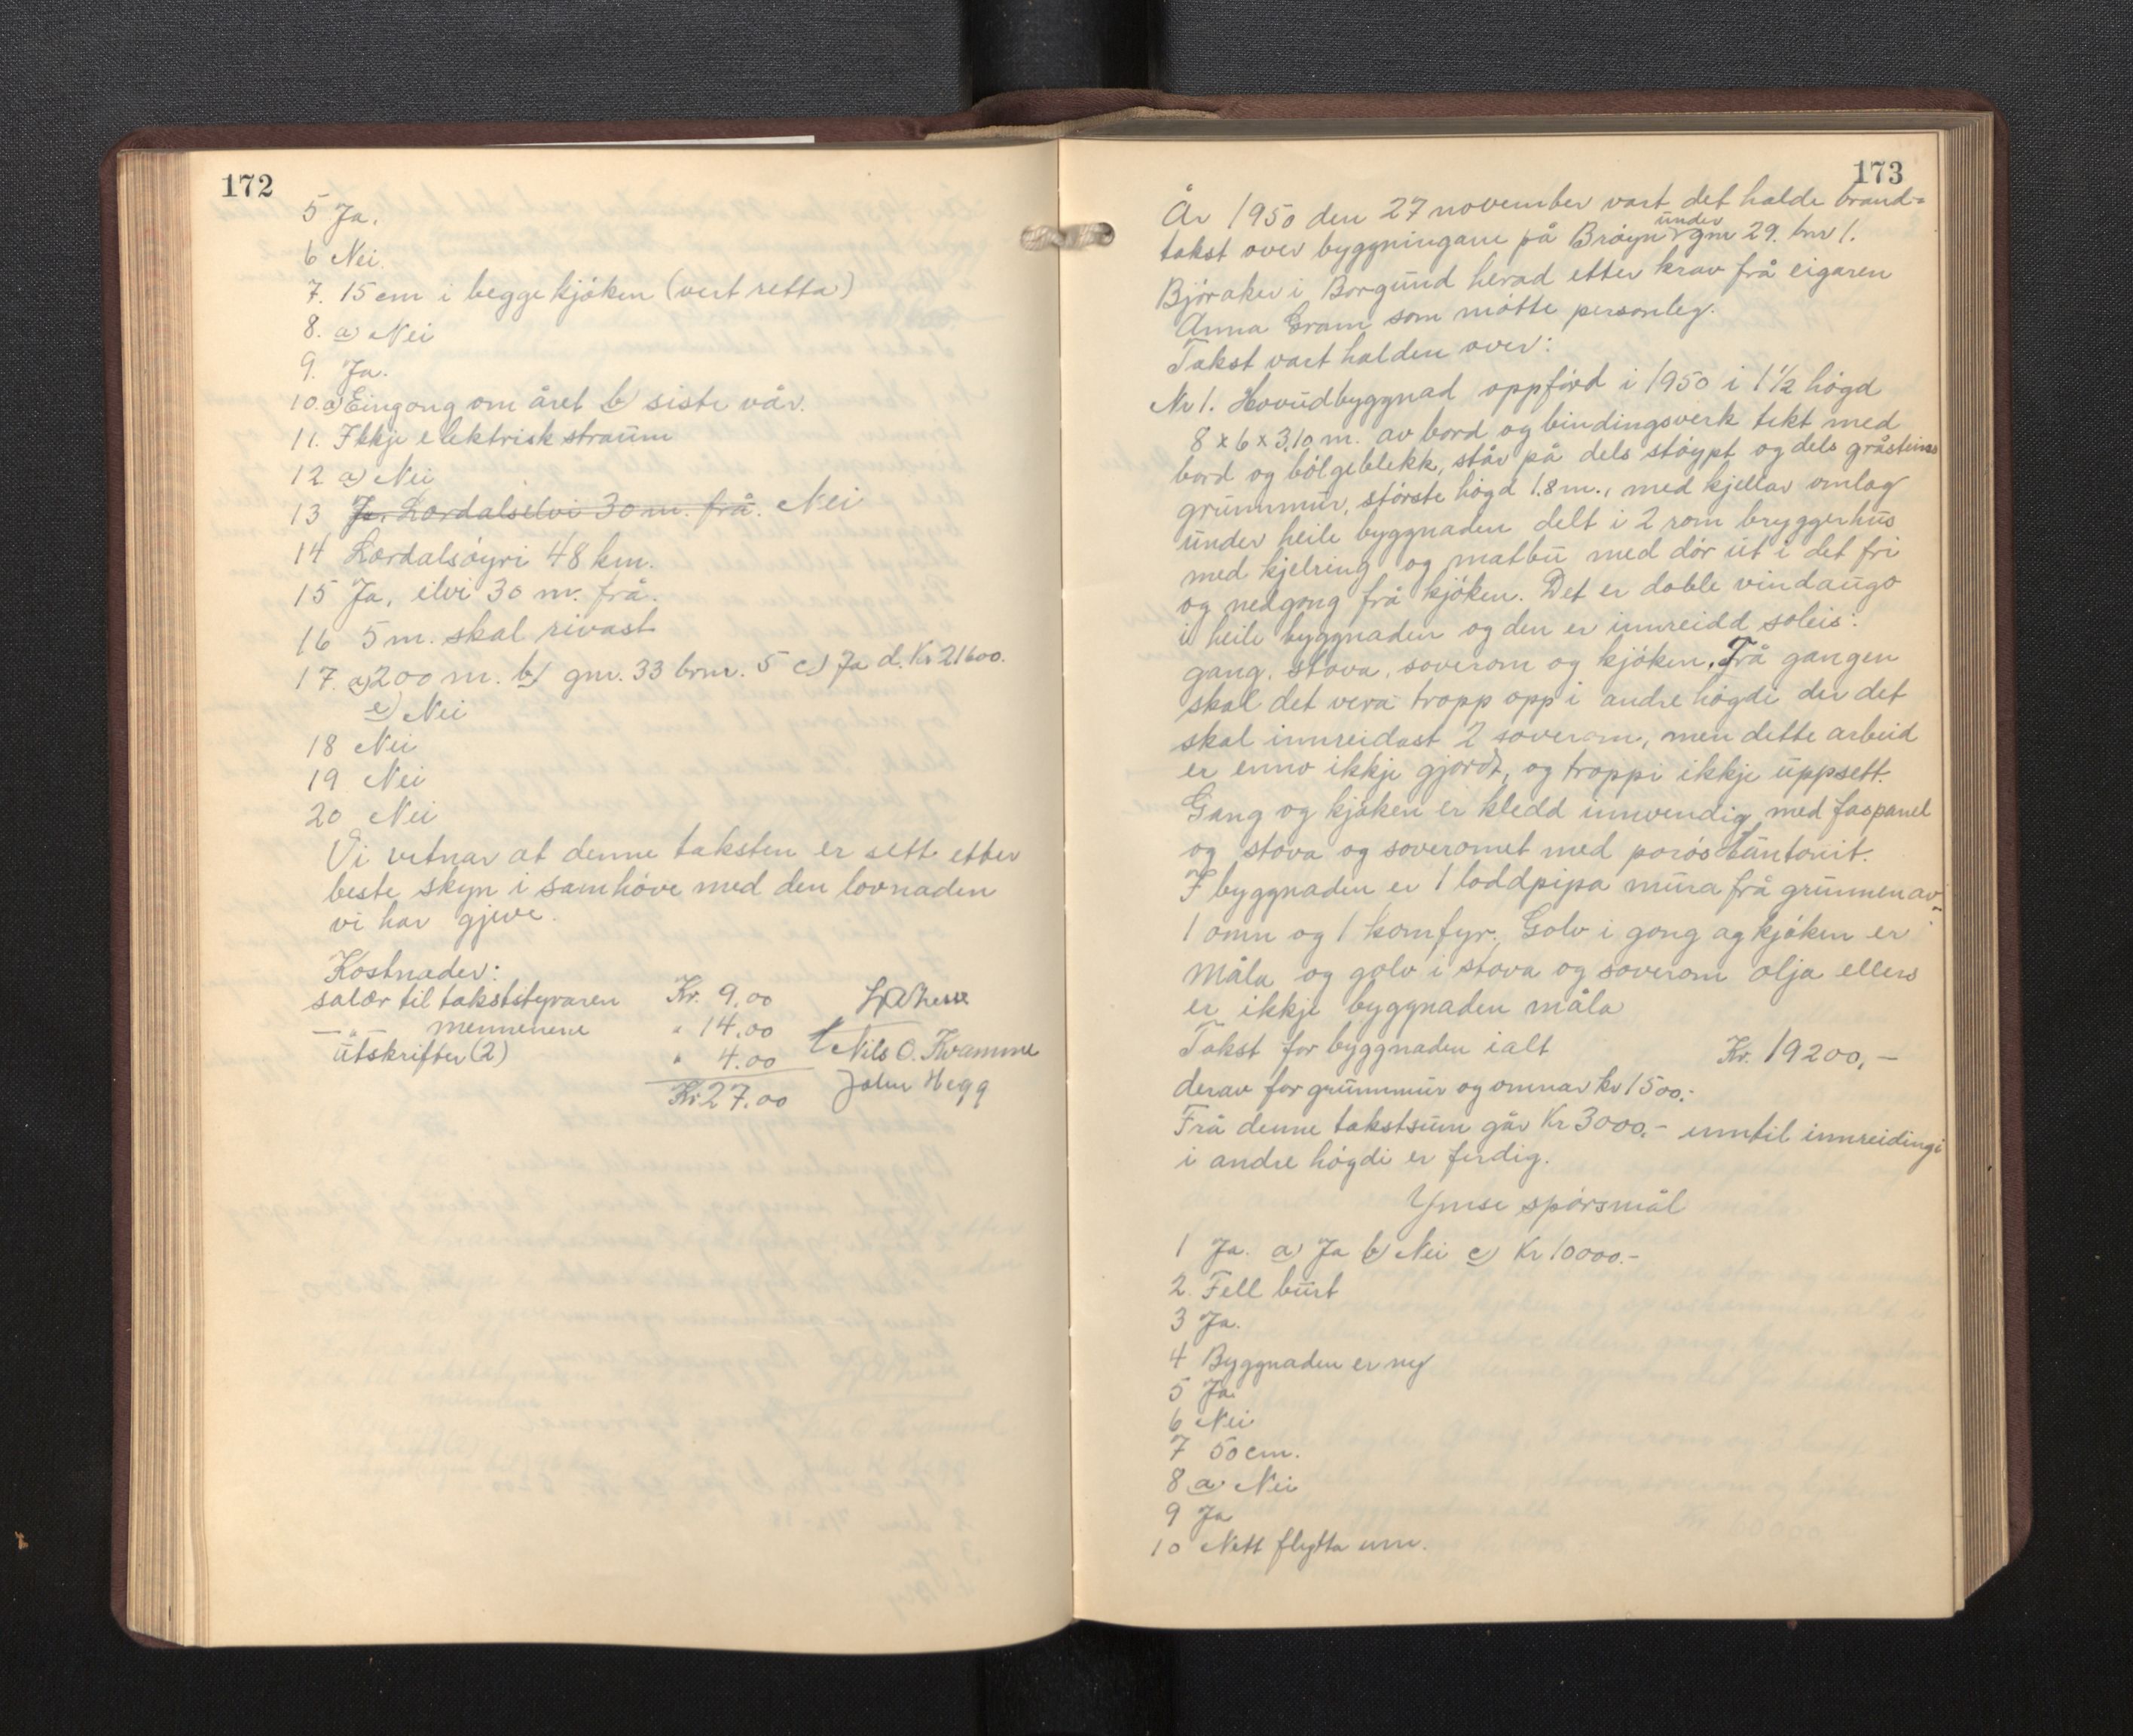 172
5 Ja.
6 Nei.
7. 15 cm i begge kjøken (vert retta)
8. a) Nei
9. Ja.
10. a) Eingong om året b) siste vår.
11. Ikkje elektrisk straum
12 a) Nei
13 Ja. Lærdalselvi 30 m. frå. Nei
14 Lærdalsøyri 48 km.
15 Ja, elvi 30 m. frå.
16 5 m. skal rivast
17. a) 200 m. b) gnr. 33 bnr. 5 c) Ja d. Kr 21600.
e) Nei
18 Nei
19 Nei
20 Nei
Vi vitnar at denne taksten er sett etter
beste skyn i samhøve med den lovnaden
vi har gjeve.
Kostnader:
salær til takststyraren Kr. 9,00
— " — mennenene " 14.00
Utskrifter (2) " 4.00
Kr 27.00
Nils O. Kvamme
John Hegg
173
År 1950 den 27 november vart det halde brand-
takst over byggningane på Brøyn under gnr 29. bnr 1.
Bjøraker i Borgund herad etter krav frå eigaren
Anna Gram som møtte personleg.
Takst vart halden over:
Nr 1. Hovudbyggnad oppførd i 1950 i 1½ høgd
8 x 6 x 3,10 m. av bord og bindingsverk tekt med
bord og bølgeblekk, står på dels støypt og dels gråsteins
grunnmur, største høgd 1.8 m., med kjellar omlag
under heile byggnaden delt i 2 rom bryggerhus
med kjelring og matbu med dør ut i det fri
og nedgong frå kjøken. Det er doble vindaugo
i heile byggnaden og den er innreidd soleis:
gang, stova, soverom og kjøken. Frå gangen
skal det vera tropp opp i andre høgdi der det
skal innreidast 2 soverom, men dette arbeid
er enno ikkje gjordt, og troppi ikkje uppsett.
Gang og kjøken er kledd innvendig med faspanel
og stova og soveromet med porøs täntonit.
I byggnaden er 1 loddpipa mura frå grunnen av-
1 omn og 1 komfyr. Golv i gong og kjøken er
måla og golv i stova og soverom olja ellers
er ikkje byggnaden måla
Takst for byggnaden ialt Kr. 19200,-
derav for grunnmur og omnar kr 1500.-
Frå denne takstsum går Kr 3000.- inntil innreidingi
i andre høgdi er ferdig.
Ymse spørsmål
1 Ja. a) Ja b) Nei c) Kr 10000.-
2. Fell burt
3 Ja.
4 Byggnaden er ny
5 Ja.
6 Nei
7 50 cm.
8 a) Nei
9 Ja
10 Nett flytta inn.